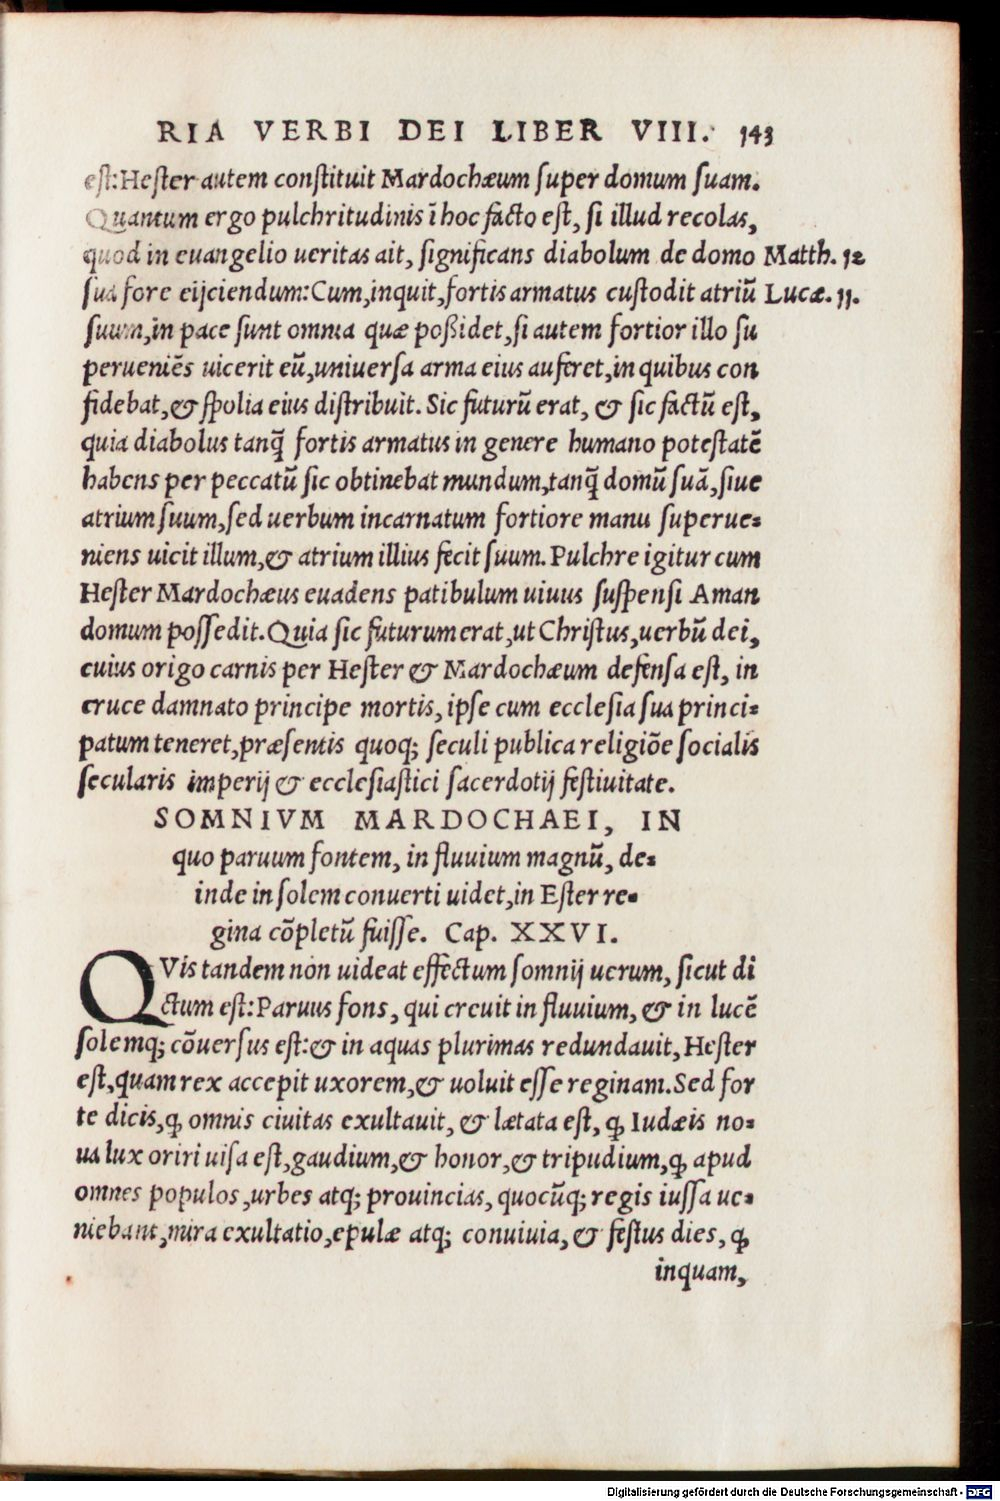 RIA VERBI DEI LIBER VIII. 143
est:Hester autem constituit Mardochæum super domum suam.
Quantum ergo pulchritudinis ĩ hoc facto est, si illud recolas,
quod in euangelio ueritas ait, significans diabolum de domo Matth. 12
sua fore eijciendum:Cum,inquit,fortis armatus custodit atriũ Lucæ. 11.
suum,in pace sunt omnia quæ poßidet,si autem fortior illo su
perueniẽs uicerit eũ,uniuersa arma eius auferet,in quibus con
fidebat,& spolia eius distribuit. Sic futurũ erat, & sic factũ est,
quia diabolus tanq̃ fortis armatus in genere humano potestatẽ
habens per peccatũ sic obtinebat mundum,tanq̃ domũ suã,siue
atrium suum,sed uerbum incarnatum fortiore manu superue=
niens uicit illum,& atrium illius fecit suum. Pulchre igitur cum
Hester Mardochæus euadens patibulum uiuus suspensi Aman
domum possedit. Quia sic futurum erat,ut Christus,uerbũ dei,
cuius origo carnis per Hester & Mardochæum defensa est, in
cruce damnato principe mortis, ipse cum ecclesia sua princi=
patum teneret,præsentis quoq; seculi publica religiõe socialis
secularis imperij & ecclesiastici sacerdotij festiuitate.
SOMNIVM MARDOCHAEI, IN
quo paruum fontem, in fluuium magnũ, de=
inde in solem conuerti uidet,in Ester re=
gina cõpletũ fuisse. Cap. XXVI.
QVis tandem non uideat effectum somnij uerum, sicut di
ctum est:Paruus fons, qui creuit in fluuium, & in lucẽ
solemq; cõuersus est:& in aquas plurimas redundauit, Hester
est,quam rex accepit uxorem,& uoluit esse reginam. Sed for
te dicis,ꝙ omnis ciuitas exultauit, & lætata est, ꝙ Iudæis no=
ua lux oriri uisa est,gaudium,& honor,& tripudium,ꝙ apud
omnes populos,urbes atq; prouincias, quocũq; regis iussa ue=
niebant,mira exultatio,epulæ atq; conuiuia, & festus dies, ꝙ
inquam,
Digitalisierung gefördert durch die Deutsche Forschungsgemeinschaft - DFG